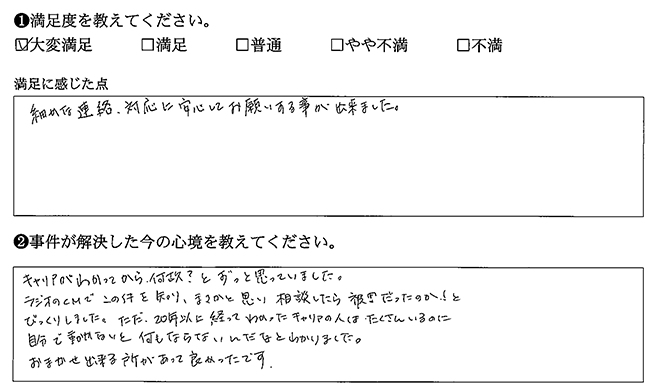 ❶満足度を教えてください。
☑大変満足 □満足 □普通 □やや不満 □不満
満足に感じた点
細めな連絡、対応に安心してお願いする事が出来ました。
❷事件が解決した今の心境を教えてください。
キャリアがわかってから、何故?とずっと思っていました。
ラジオのCMでこの件を知り、まさかと思い相談したら被害だったのか!と
びっくりしました。ただ、20年以上経ってわかったキャリアの人はたくさんいるのに
自分で動かないと何もならないんだなとわかりました。
おまかせ出来る所があって良かったです。